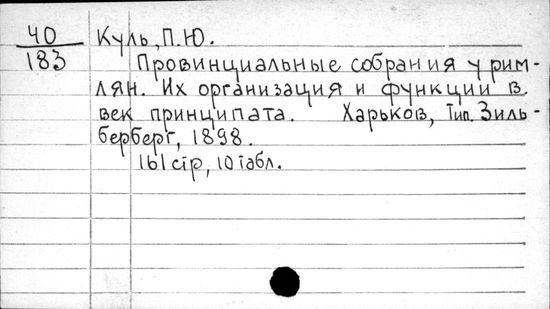 40 Куль, П.Ю.
183 Провинциальные собрания у рим-
лян. Их организация и функции в
век принципата. Харьков, Тип. Зиль-
берберг, 1898.
161 стр, 10 табл.